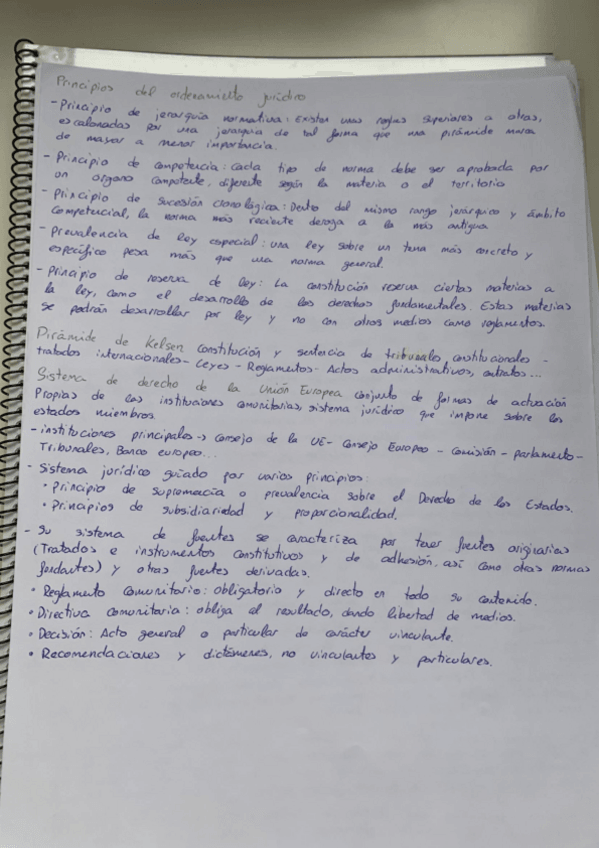 Principios del ordenamiento jurídico
- Principio de jerarquía normativa: Existen unas reglas superiores a otras,
escalonadas por una jerarquía de tal forma que una pirámide marca
de mayor a menor importancia.
- Principio de competencia: Cada tipo de norma debe ser aprobada por
un organo competente, diferente según la materia o el territorio
- Principio de sucesión cronológica: Dentro del mismo rango jerárquico y ámbito
competencial, la norma más reciente deroga a la más antigua
- Prevalencia de ley especial: una ley sobre un tema más concreto y
específico pesa más que una norma general.
- Principio de reserva de ley: La constitución reserva ciertas materias a
la ley, como el desarrollo de los derechos fundamentales. Estas materias
se podrán desarrollar por ley y no con otros medios como reglamentos.
Pirámide de Kelsen constitución y sentencia de tribunales constitucionales -
tratados internacionales - Leyes - Reglamentos - Actos administrativos, contratos...
Sistema de derecho de la Unión Europea conjunto de formas de actuación
Propias de las instituciones comunitarias, sistema jurídico que impone sobre los
estados miembros.
- instituciones principales -> Consejo de la UE - Consejo Europeo - Comisión - parlamento -
Tribunales, Banco europeo...
- Sistema jurídico guiado por varios principios:
• Principio de supremacía o prevalencia sobre el Derecho de los Estados.
• Principios de subsidiariedad y proporcionalidad.
- Su sistema de fuentes se caracteriza por tener fuentes originarias
(Tratados e instrumentos constitutivos y de adhesión, así como otras normas
fundantes) y otras fuentes derivadas.
• Reglamento comunitario: obligatorio y directo en todo su contenido.
• Directiva comunitaria: obliga al resultado, dando libertad de medios.
• Decisión: Acto general o particular de carácter vinculante.
• Recomendaciones y dictámenes, no vinculantes y particulares.